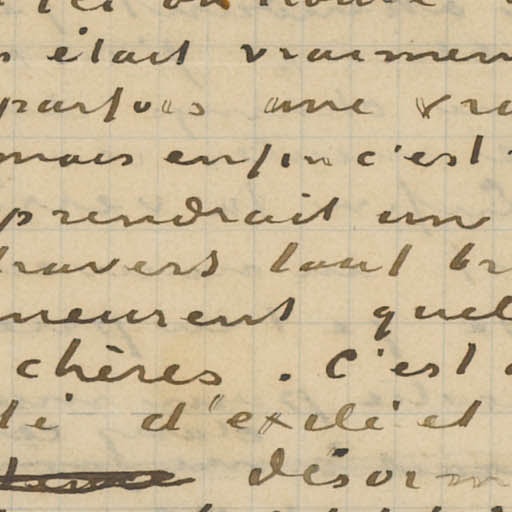 était vraimen
parfois une vra
mais enfin c'est
prendrait un
travers tout br
meurent quel
chères. C'est
té d'exil et
désorm